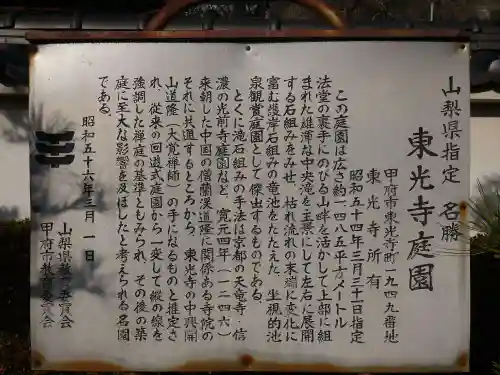 山梨県指定 名勝
東光寺庭園
甲府市東光寺町一九四九番地
東光寺所有
昭和五十四年三月三十一日指定
この庭園は広さ約一四八五平方メートル
法堂の裏手にのびる山畔を活かして上部に組
まれた雄渾な中央滝を主景にして左右に展開
する石組みをみせ、枯れ流れの末端に変化に
富む護岸石組みの竜池をたたえた、坐視的池
泉観賞庭園として傑出するものである。
とくに滝石組みの手法は京都の天竜寺、信
濃の光前寺庭園など、寛元四年(一二四六)
来朝した中国の僧蘭渓道隆に関係ある寺院の
それに共通するところから、東光寺の中興開
山道隆(大覚禅師)の手になるものと推定さ
れ、従来の回遊式庭園から一変して縦の線を
強調した禅庭の基準ともみられ、その後の築
庭に至大な影響を及ぼしたと考えられる名園
である。
昭和五十六年三月一日
山梨県教育委員会
甲府市教育委員会